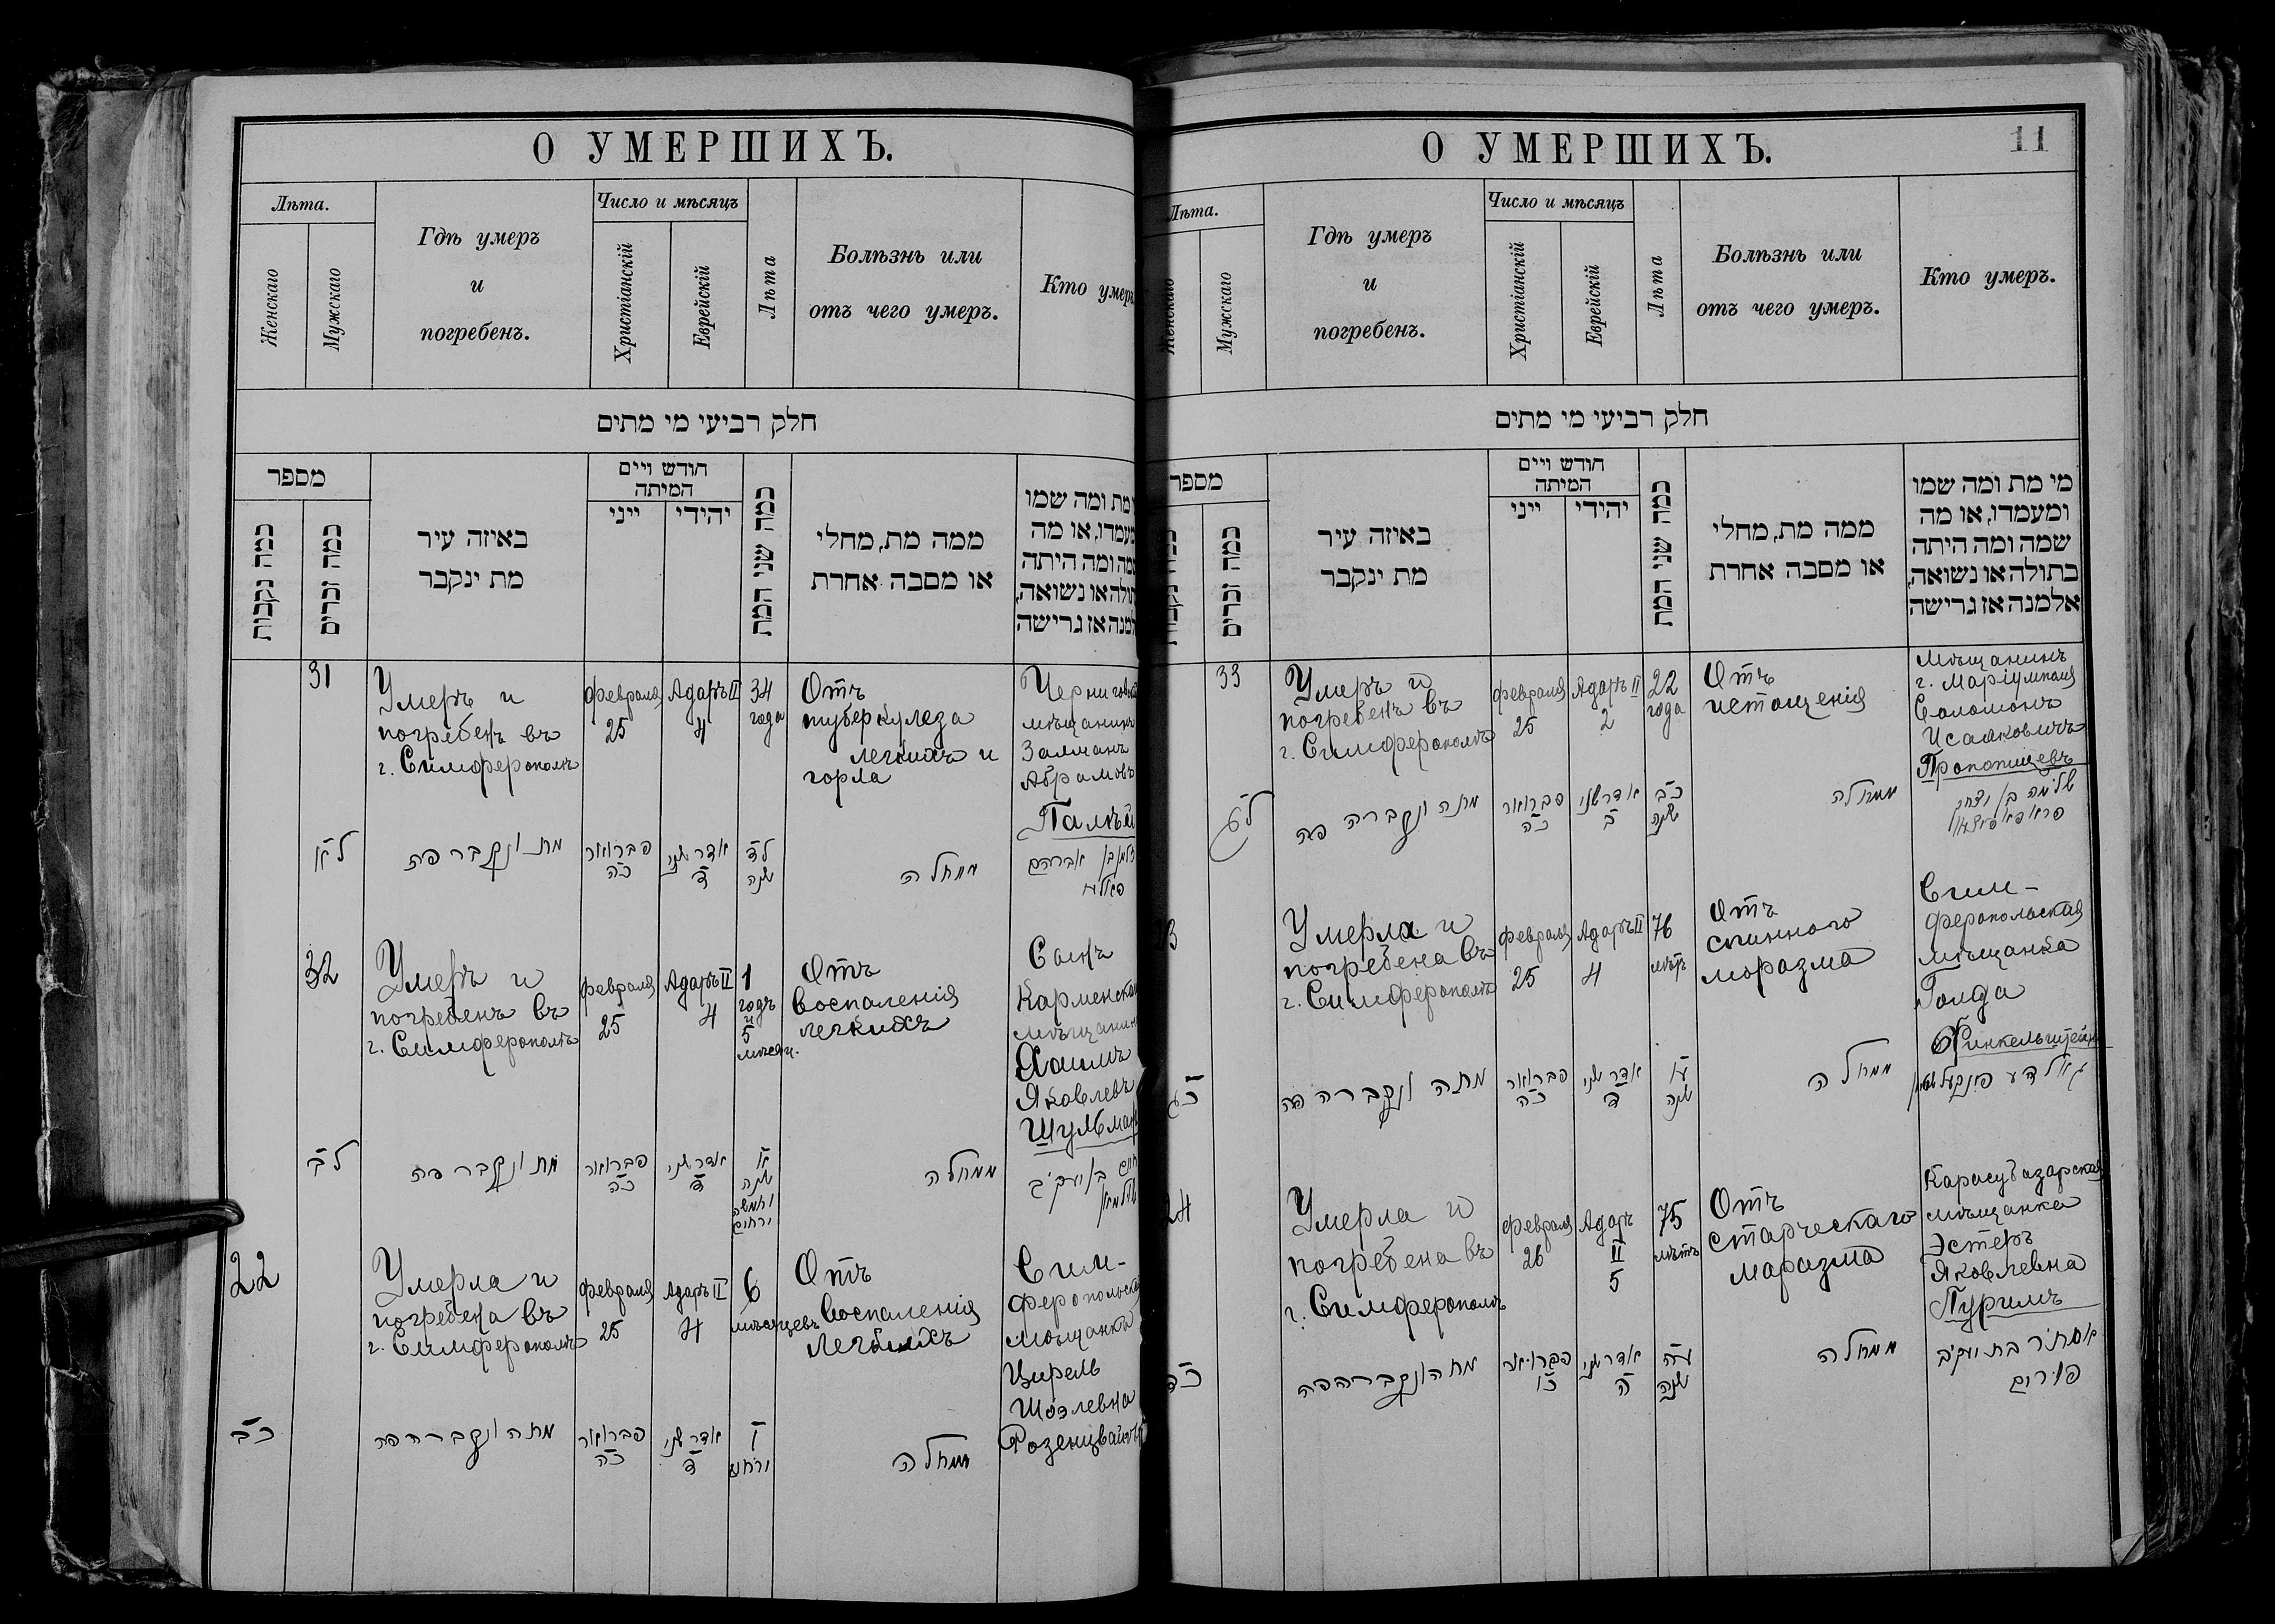 О УМЕРШИХЪ.
Лѣта.
Женскаго
Мужскаго
Гдѣ умеръ
и
погребенъ.
Число и мѣсяцъ
Христіанскій
Еврейскій
Лѣта
Болѣзнь или
отъ чего умеръ.
Кто умеръ
חלק רביעי מי מתים
מספר
כמה נקבות
כמה זכרים
באיזה עיר
מת ינקבר
חודש ויים
המיתה
ייני
יהידי
כמה שני המת
ממה מת, מחלי
או מסבה אחרת
מת ומה שמו
מעמדו, או מה
שמה ומה היתה
או נשואה,
אז גרישה
31
Умеръ и
погребенъ въ
г. Симферополѣ
Февраля
25
Адаръ II
4
34
года
Отъ
туберкулеза
легкихъ и
горла
мѣщанинъ
Залманъ
Абрамовъ
ל״א
מת ונקבר פה
פברואר
כ״ה
אדר שני
ד
ל״ד
שנה
ממחלה
זלמן בן אברהם
32
Умеръ и
погребенъ въ
г. Симферополѣ
Февраля
25
Адаръ II
4
1
годъ
и
5
мѣсяц.
Отъ
воспаленія
легкихъ
Сынъ
Хаимъ
Яковлевъ
Шульман
ל״ב
מת ונקבר פה
פברואר
כ״ה
אדר שני
ד
א
שנה
וחמשה
ירחים
ממחלה
חיים בן יעקב
שולמאן
22
Умерла и
погребена въ
г. Симферополѣ
Февраля
25
Адаръ II
4
6
мѣсяцевъ
Отъ
воспаленія
легкихъ
Сим-
феропольская
мѣщанка
Цирель
כ״ב
מתה ונקברה פה
פברואר
כ״ה
אדר שני
ד
ו
ירחים
ממחלה
О УМЕРШИХЪ.
11
Лѣта.
Женскаго
Мужскаго
Гдѣ умеръ
и
погребенъ.
Число и мѣсяцъ
Христіанскій
Еврейскій
Лѣта
Болѣзнь или
отъ чего умеръ.
Кто умеръ.
חלק רביעי מי מתים
מספר
כמה זכרים
באיזה עיר
מת ינקבר
חודש ויים
המיתה
ייני
יהידי
כמה שני המת
ממה מת, מחלי
או מסבה אחרת
מי מת ומה שמו
ומעמדו, או מה
שמה ומה היתה
בתולה או נשואה,
אלמנה אז גרישה
33
Умеръ и
погребенъ въ
г. Симферополѣ
Февраля
25
Адаръ II
2
22
года
Отъ
истощенія
Мѣщанинъ
г. Маріумполя
Соломонъ
Исааковичъ
ל״ג
מתה ונקברה פה
פברואר
כ״ה
אדר שני
ב
כ״ב
שנה
ממחלה
שלמה בן יצחק
Умерла и
погребена въ
г. Симферополѣ
Февраля
25
Адаръ II
4
76
лѣтъ
Отъ
спинного
моразма
Сим-
феропольская
мѣщанка
Голда
Финкельштейнъ
כ״ג
מתה ונקברה פה
פברואר
כ״ה
אדר שני
ד
ע״ו
שנה
ממחלה
גאלדע
24
Умерла и
погребена въ
г. Симферополѣ
Февраля
26
Адаръ
II
5
75
лѣтъ
Отъ
старческаго
маразма
Карасубазарская
мѣщанка
Эстеръ
Яковлевна
Пуримъ
כ״ד
מתה ונקברה פה
פברואר
כ״ו
אדר שני
ה
ע״ה
שנה
ממחלה
אסתר בת יעקב
פורים